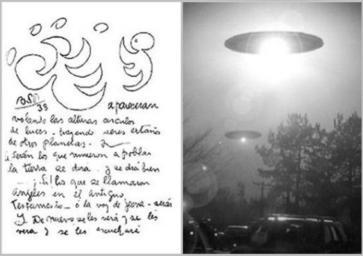 BSP
38
apareceran
volando las alturas circulos
de luces - trayendo seres extraños
de otros planetas.
Serán los que vinieron a poblar
la tierra se dira - y se dirá bien
¡Si! los que se llamaron
ángeles en el antiguo
Testamento - ó la voz de Jeova - serán
Y De nuevo se les verá y se les
vera y se les escuchará